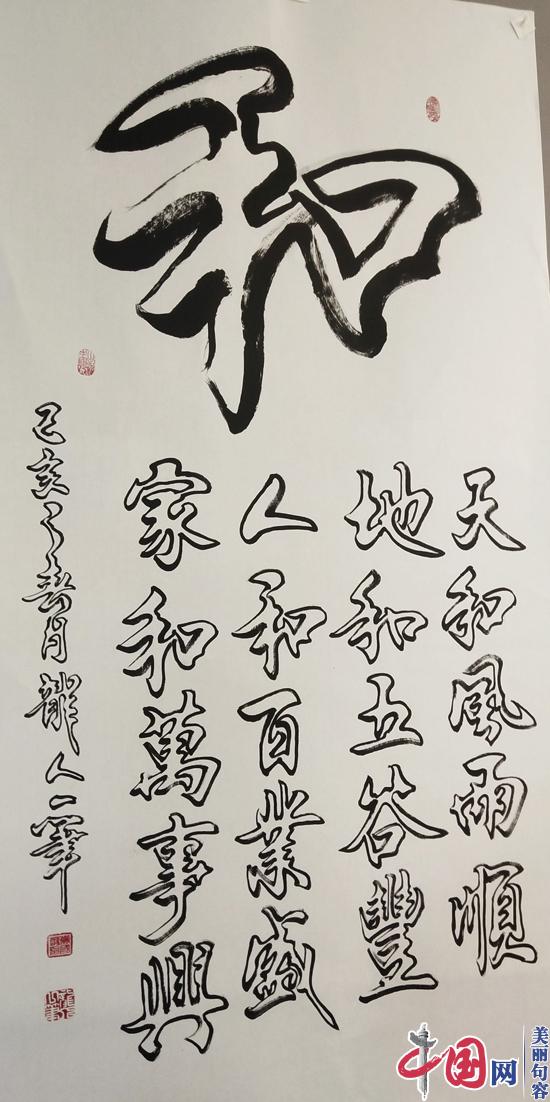 和
天和風雨順
地和五谷豐
人和百業盛
家和萬事興
己亥之春月龍人一筆
中国网
美丽句容